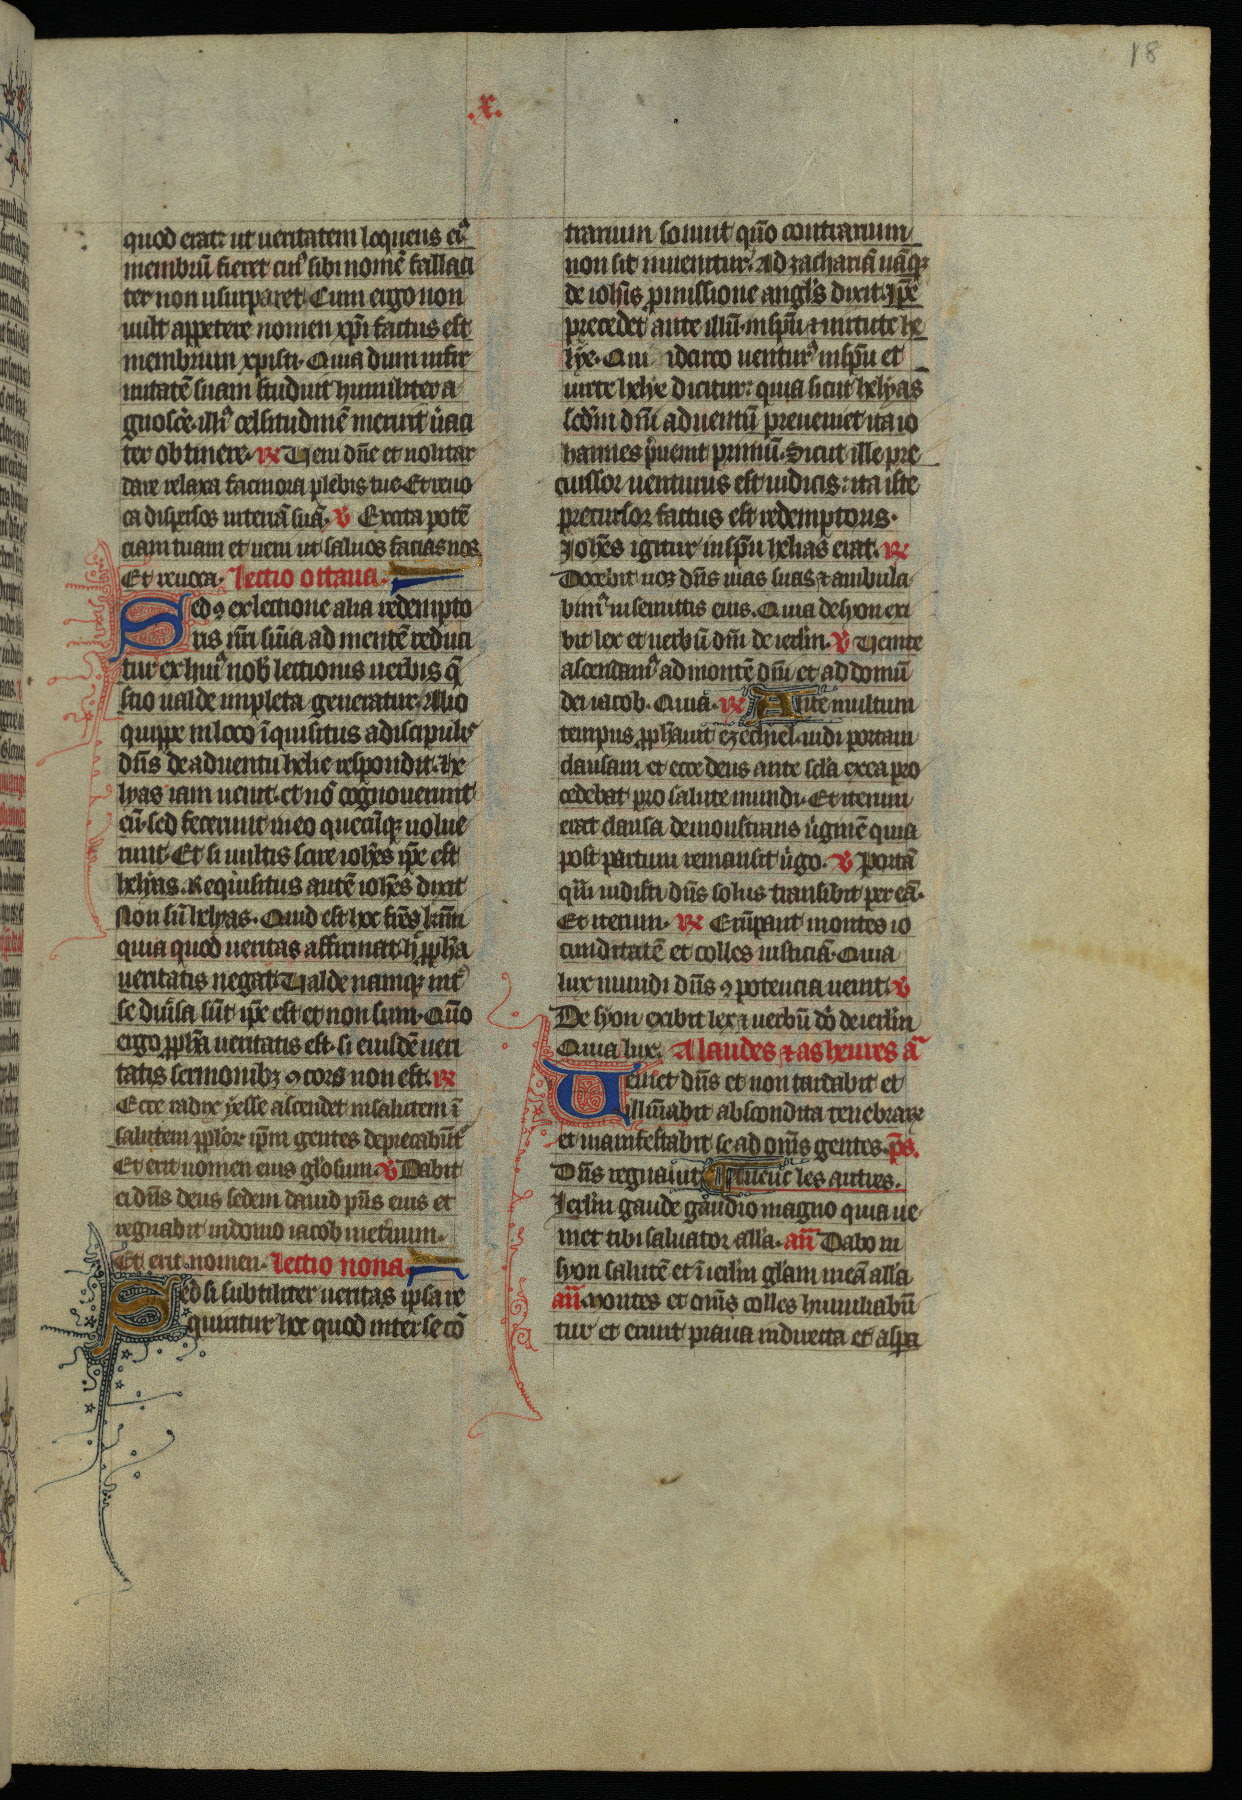 18
.x.
quod erat: ut ueritatem loquens eiꝰ
membrū fieret cuiꝰ sibi nomē fallaci
ter non usurparet. Cum ergo non
uult appetere nomen xp̄i factus est
membrum xpisti. Quia dum infir
mitatē suam studuit humiliter a
gnosce᷑. illiꝰ celsitudinē meruit u᷑aci
ter obtinere. ℟ Ueni dn̄e et noli tar
dare relaxa facinora plebis tue. Et reuo
ca dispersos in terrā suā. v Excita potē
ciam tuam et ueni ut saluos facias nos
Et reuoca. Lectio ottaua.
Sed ꝯ ex lectione alia redempto
ris nr̄i sn̄ia ad mentē reduci
tur ex huiꝰ nob̄ lectionis uerbis q̄
stio ualde impleta generatur. Alio
quippe in loco īquisitus a discipulis
dn̄s de aduentu helie respondit. he
lyas iam uenit. et nō cognouerunt
eū. sed fecerunt in eo quecūqꝫ uolue
runt. Et si uultis scire ioh̄es ip̄e est
helyas. Requisitus autē ioh̄es dixit
Non sū helyas. Quid est hoc fr̄es km̄i
quia quod ueritas affirmat. h᷒ ꝓph̄a
ueritatis negat. Ualde namqꝫ int᷑
se diu᷑sa sūt ip̄e est et non sum. Quō
ergo ꝓph̄a ueritatis est. si eiusdē ueri
tatis sermonibꝫ ꝯcors non est. ℟
Ecce radix yesse ascendet in salutem ī
salutem pp̄lorꝫ ip̄m gentes deprecabūt᷑
Et erit nomen eius gl̄osum. v Dabit
ei dn̄s deus sedem dauid pr̄is eius et
regnabit in domo iacob in et᷑num.
Et erit nomen. Lectio nona.
Sed si subtiliter ueritas ipsa re
quiritur hoc quod inter se cō
trarium sonuit quō contrarium
non sit inuenitur. Ad zachariā nāqꝫ
de ioh̄is ꝓmissione angl̄s dixit. Ip̄e
precedet ante illū. in sp̄u ⁊ uirtute he
lye. Qui idcirco uenturꝰ in sp̄u et
uirte helye dicitur: quia sicut helyas
sc̄dm dn̄i aduentū preueniet ita io
hannes p᷑uenit primū. Sicut ille pre
cussor uenturus est iudicis: ita iste
precursor factus est redemptoris.
Ioh̄es igitur in sp̄u helias erat. ℟
Docebit nos dn̄s uias suas ⁊ ambula
bimꝰ in semitis eius. Quia de syon exi
bit lex et uerbū dn̄i de ierl̄m. v Uenite
ascendamꝰ ad montē dn̄i et ad domū
dei iacob. Quia. ℟ Ante multum
tempus ꝓphauit ezechiel. uidi portam
clausam et ecce deus ante sc̄la ex ea pro
cedebat pro salute mundi. Et iterum
erat clausa demonstrans u᷑ginē quia
post partum remansit u᷑go. v Portā
quā uidisti dn̄s solus transibit per eā.
Et iterum. ℟ Erūpant montes io
cunditatē et colles iusticiā. Quia
lux mundi dn̄s ꝯ potencia uenit. v
De syon exibit lex ⁊ uerbū dō de ierl̄m
Quia lux. A laudes ⁊ as heures ā
Ueniet dn̄s et non tardabit et
illūnabit abscondita tenebrarꝫ
et manifestabit se ad om̄s gentes. p̄s.
Dn̄s regnauit. Aueuc les autres.
Ierl̄m gaude gaudio magno quia ue
niet tibi saluator all̄a. an̄ Dabo in
syon salutē et ī ierl̄m gl̄am meā all̄a
an̄ Montes et om̄s colles humiliabū
tur et erunt praua in directa et aspa